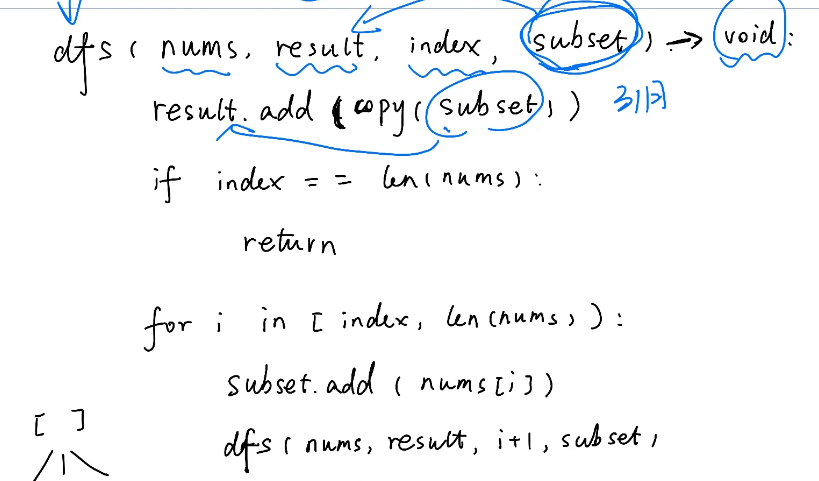 dfs ( nums, result, index, subset ) → void :
result. add ( copy ( subset ) ) 引用
if index == len ( nums ) :
return
for i in [ index, len ( nums ) ) :
subset. add ( nums [ i ] )
[ ]
dfs ( nums, result, i+1, subset )